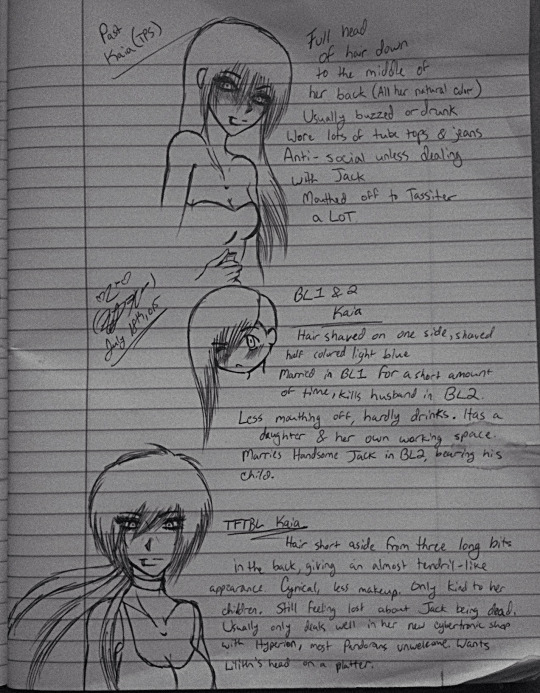 Past
Kaia (TPS)
Full head
of hair down
to the middle of
her back (All her natural color)
Usually buzzed or drunk
Wore lots of tube tops & jeans
Anti-social unless dealing
with Jack
Mouthed off to Tassiter
a LOT
July 18th, 015
BL1 & 2
Kaia
Hair shaved on one side, shaved
half colored light blue
Married in BL1 for a short amount
of time, kills husband in BL2.
Less mouthing off, hardly drinks. Has a
daughter & her own working space.
Marries Handsome Jack in BL2, bearing his
child.
TFTBL Kaia
Hair short aside from three long bits
in the back, giving an almost tendril-like
appearance. Cynical, less makeup. Only kind to her
children. Still feeling lost about Jack being dead.
Usually only deals well in her new cybertronic shop
with Hyperion, most Pandorans unwelcome. Wants
Lilith's head on a platter.